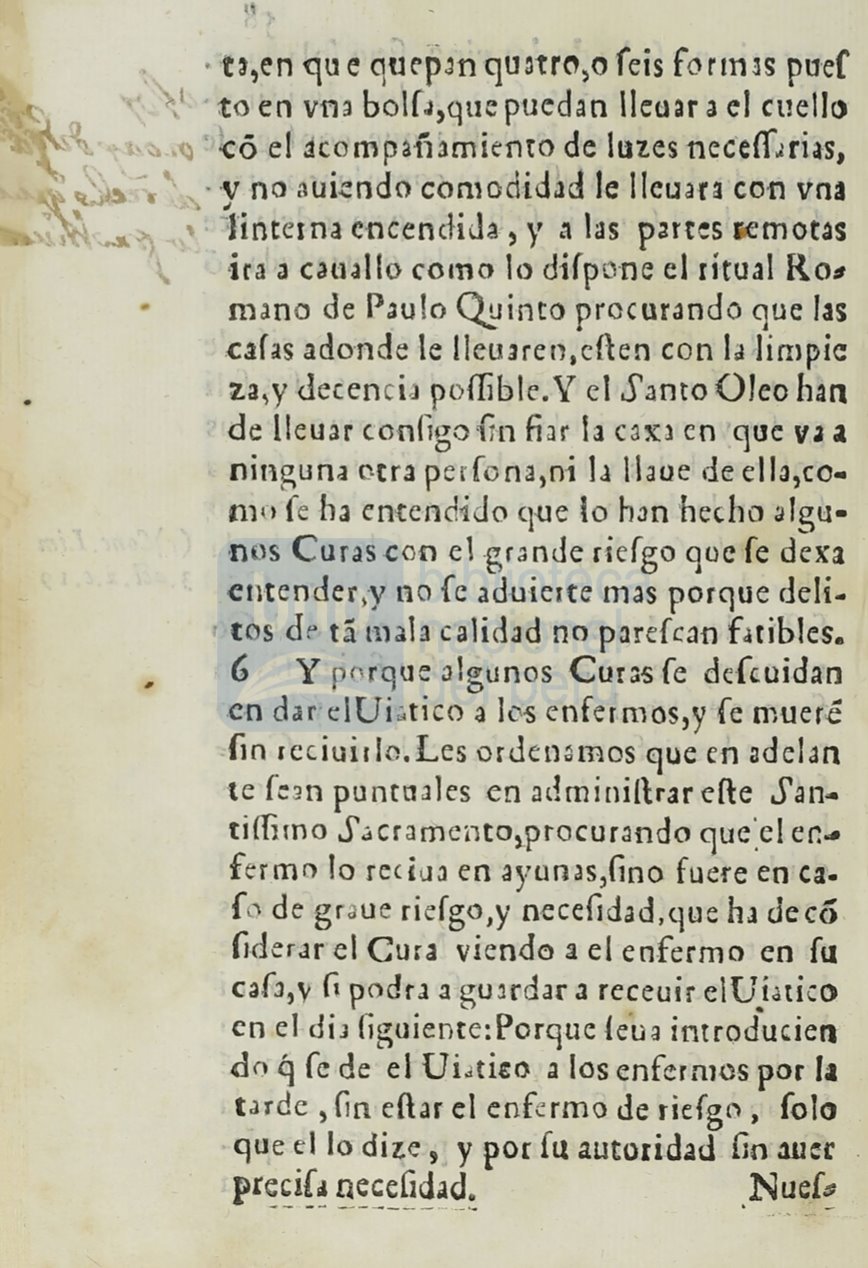 ta,en que quepan quatro,o ſeis formas pueſ
to en vna bolſa,que puedan lleuar a el cuello
cõ el acompañamiento de luzes neceſſarias,
y no auiendo comodidad le lleuara con vna
linterna encendida , y a las partes remotas
ira a cauallo como lo diſpone el ritual Ro-
mano de Paulo Quinto procurando que las
caſas adonde le lleuaren,eſten con la limpie
za,y decencia poſſible.Y el Santo Oleo han
de lleuar conſigo ſin fiar la caxa en que va a
ninguna otra perſona,ni la llaue de ella,co-
mo ſe ha entendido que lo han hecho algu-
nos Curas con el grande rieſgo que ſe dexa
entender,y no ſe aduierte mas porque deli-
tos de tã mala calidad no pareſcan fatibles.
6 Y porque algunos Curas ſe deſcuidan
en dar el Uiatico a los enfermos,y ſe muerẽ
ſin reciuirlo.Les ordenamos que en adelan
te ſean puntuales en adminiſtrar eſte San-
tiſſimo Sacramento,procurando que el en-
fermo lo reciua en ayunas,ſino fuere en ca-
ſo de graue rieſgo,y neceſidad,que ha de cõ
ſiderar el Cura viendo a el enfermo en ſu
caſa,y ſi podra a guardar a receuir el Uiatico
en el dia ſiguiente:Porque ſeua introducien
do q́ ſe de el Uiatico a los enfermos por la
tarde , ſin eſtar el enfermo de rieſgo , ſolo
que el lo dize , y por ſu autoridad ſin auer
preciſa neceſidad. Nueſ-